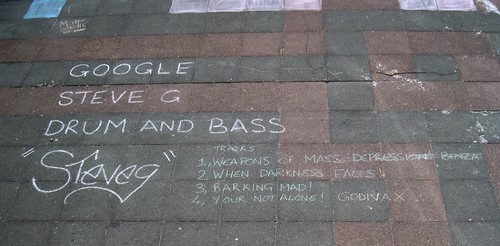 GOOGLE
STEVE G
DRUM AND BASS
"STeveg"
TRACKS
1, WEAPONS OF MASS DEPRESSION - BENZA
2, WHEN DARKNESS FALLS
3, BARKING MAD!
4, YOUR NOT ALONE! GODIVAX